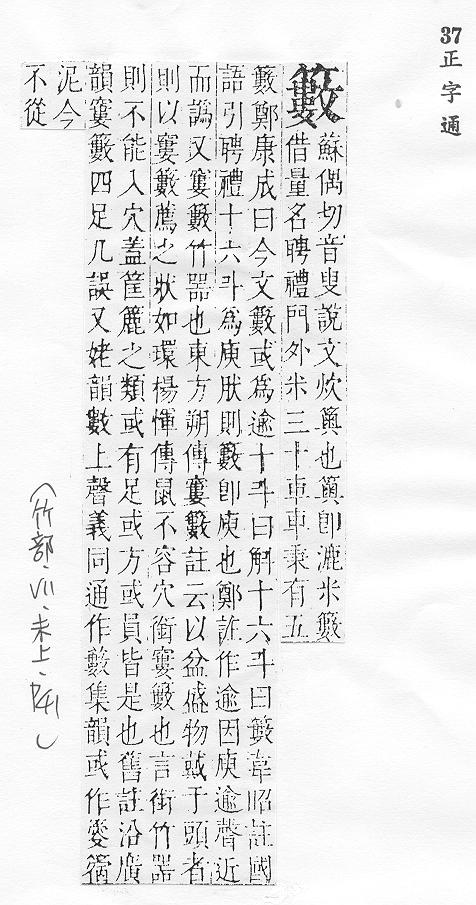 37正字通
籔
蘇偶切音叟說文炊䉛也䉛卽漉米籔
借量名聘禮門外米三十車車秉有五
籔鄭康成曰今文籔或爲逾十斗曰斛十六斗曰籔韋昭註國
語引聘禮十六斗爲庾肰則籔卽庾也鄭註作逾因庾逾聲近
而譌又寠籔竹器也東方朔傳寠籔註云以盆盛物戴于頭者
則以寠籔薦之狀如環楊惲傳鼠不容穴銜寠籔也言銜竹器
則不能入穴蓋筐簏之類或有足或方或員皆是也舊註沿廣
韻寠籔四足几誤又姥韻數上聲義同通作藪集韻或作
泥今
不從
(竹部·VII·未上·P41)